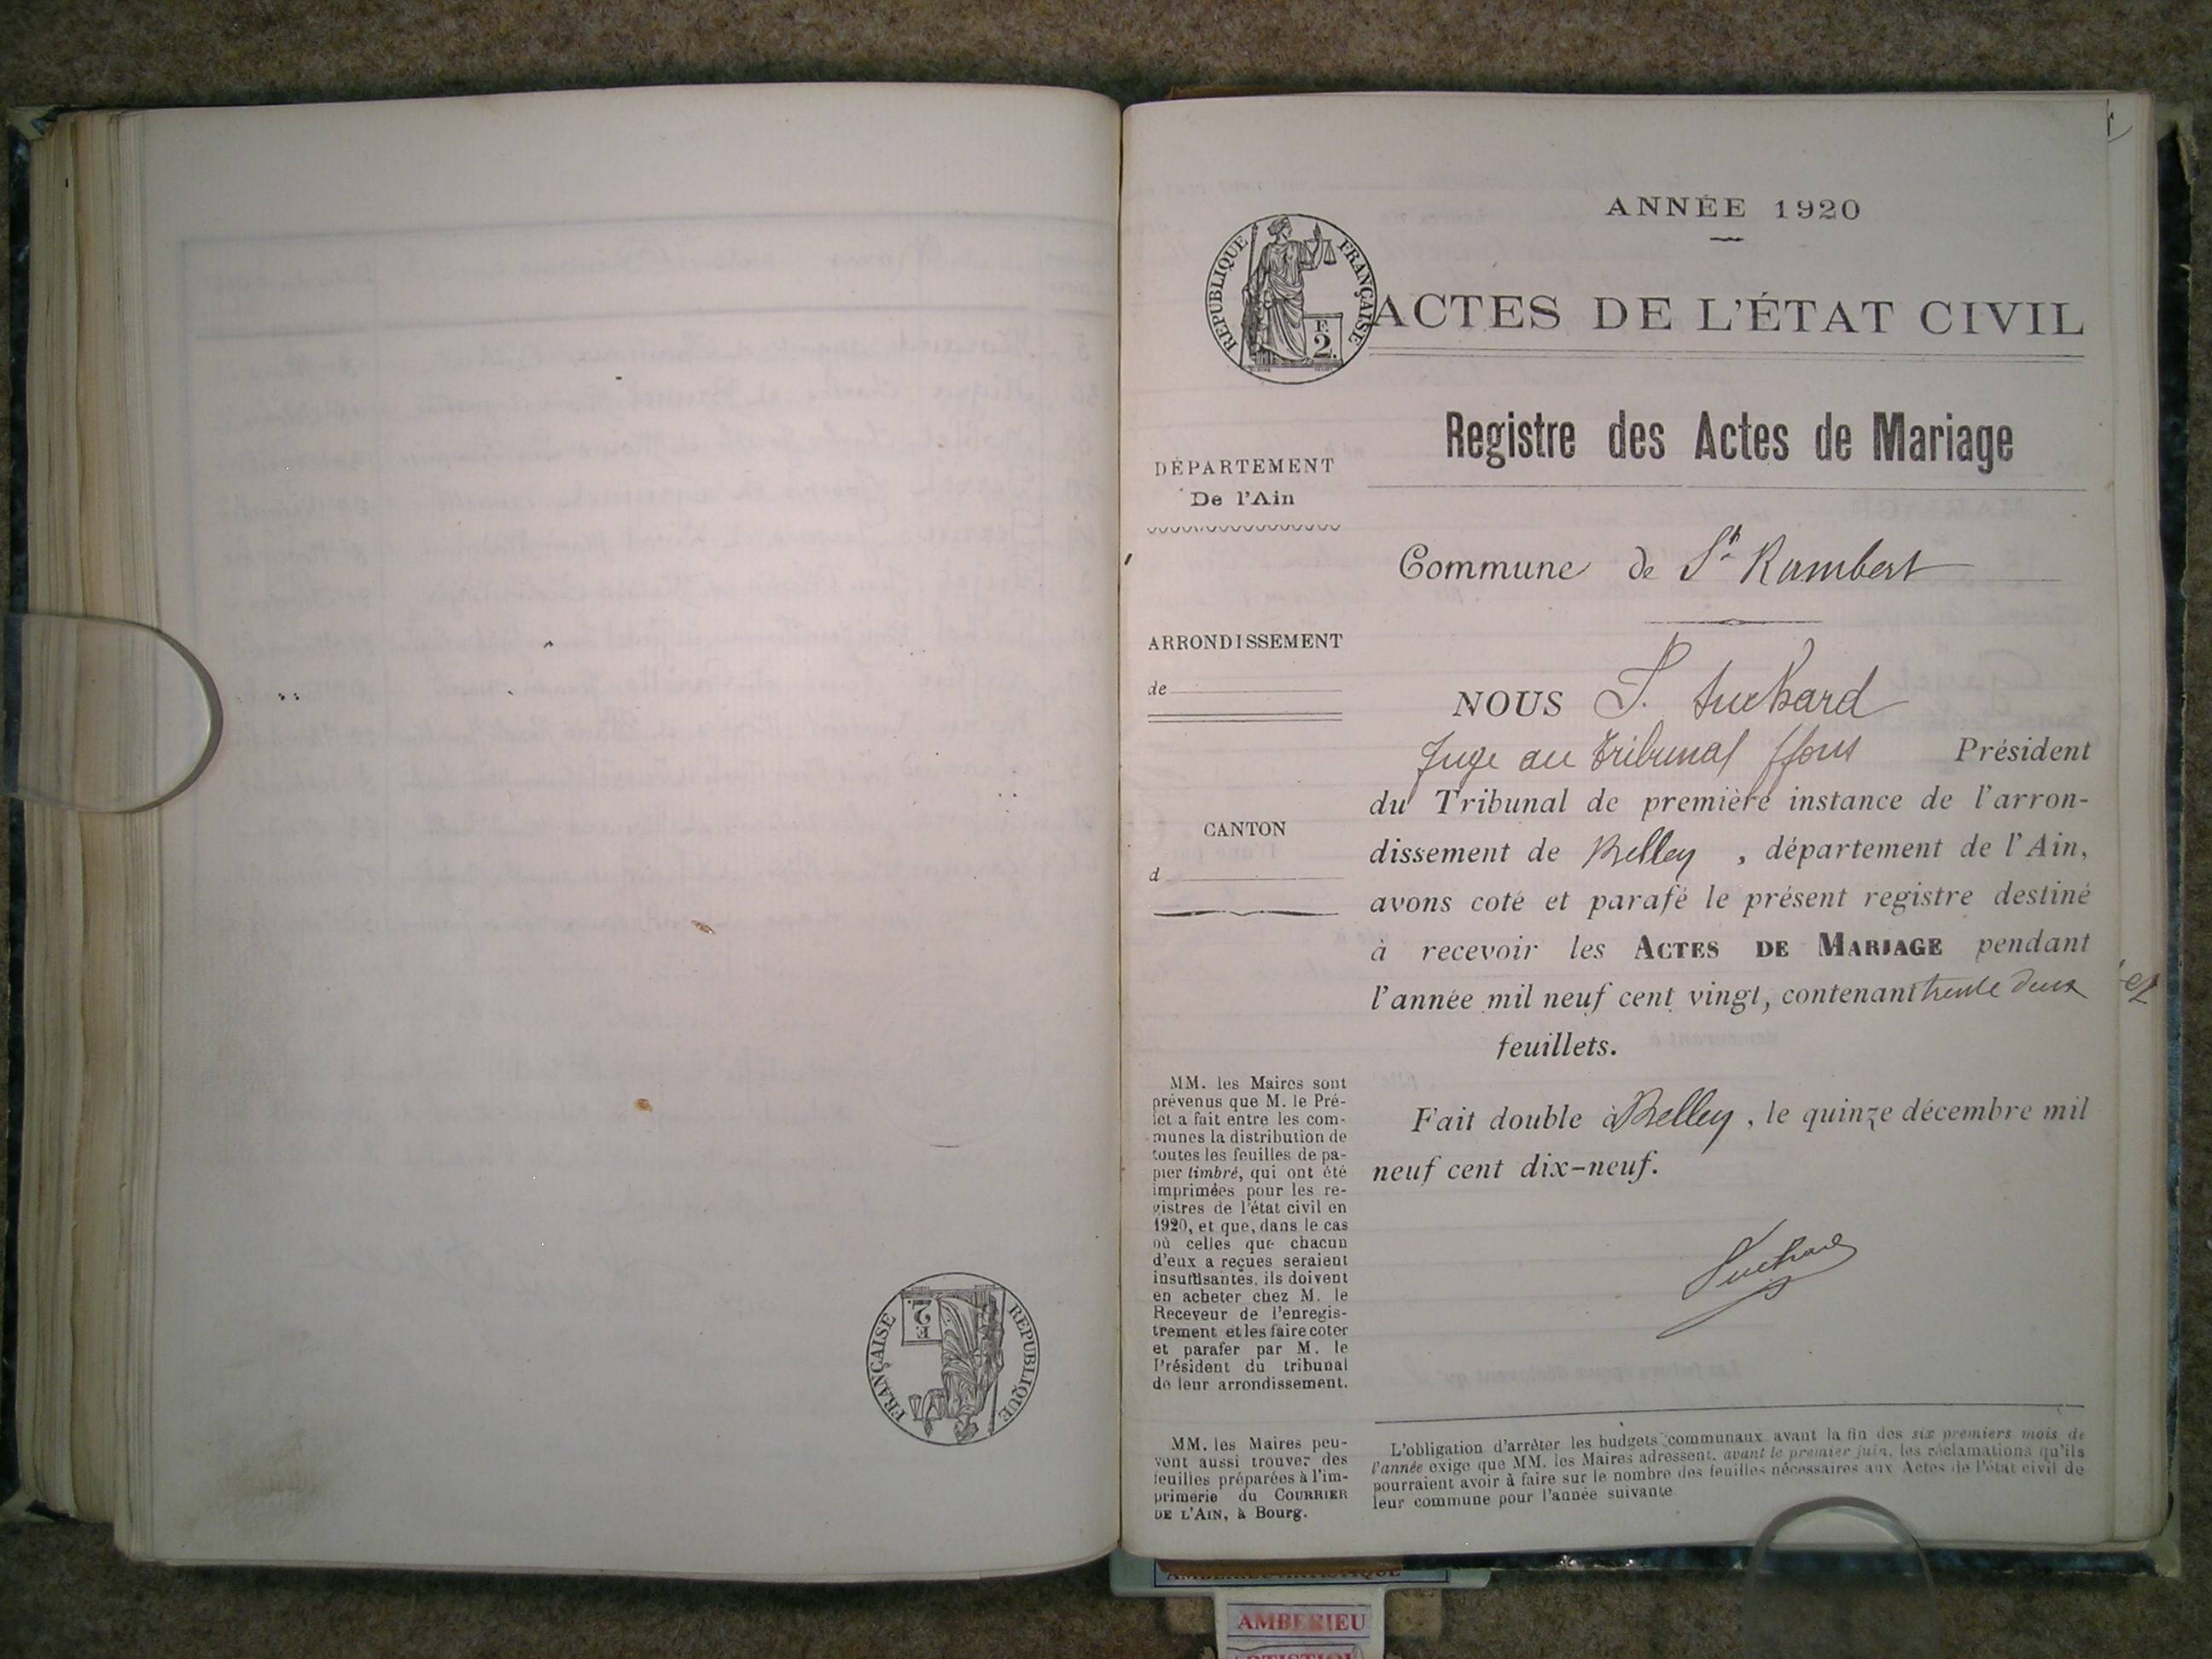 ANNÉE 1920
RÉPUBLIQUE FRANÇAISE
F.
2.
ACTES DE L'ÉTAT CIVIL
Registre des Actes de Mariage
DÉPARTEMENT
De l'Ain
Commune de St Rambert
ARRONDISSEMENT
de
CANTON
d
NOUS
Juge au Tribunal Président
du Tribunal de première instance de l'arron-
dissement de Belley, département de l'Ain,
avons coté et parafé le présent registre destiné
à recevoir les ACTES DE MARIAGE pendant
l'année mil neuf cent vingt, contenant trente deux
feuillets.
Fait double à Belley, le quinze décembre mil
neuf cent dix-neuf.
MM. les Maires sont
prévenus que M. le Pré-
fet a fait entre les com-
munes la distribution de
toutes les feuilles de pa-
pier timbré, qui ont été
imprimées pour les re-
gistres de l'état civil en
1920, et que, dans le cas
où celles que chacun
d'eux a reçues seraient
insuffisantes, ils doivent
en acheter chez M. le
Receveur de l'enregis-
trement et les faire coter
et parafer par M. le
Président du tribunal
de leur arrondissement.
MM. les Maires peu-
vent aussi trouver des
feuilles préparées à l'im-
primerie du COURRIER
DE L'AIN, à Bourg.
L'obligation d'arrêter les budgets communaux avant la fin des six premiers mois de
l'année exige que MM. les Maires adressent, avant le premier juin, les réclamations qu'ils
pourraient avoir à faire sur le nombre des feuilles nécessaires aux Actes de l'état civil de
leur commune pour l'année suivante.
RÉPUBLIQUE FRANÇAISE
F.
2.
AMBERIEU ARTISTIQUE
AMBERIEU